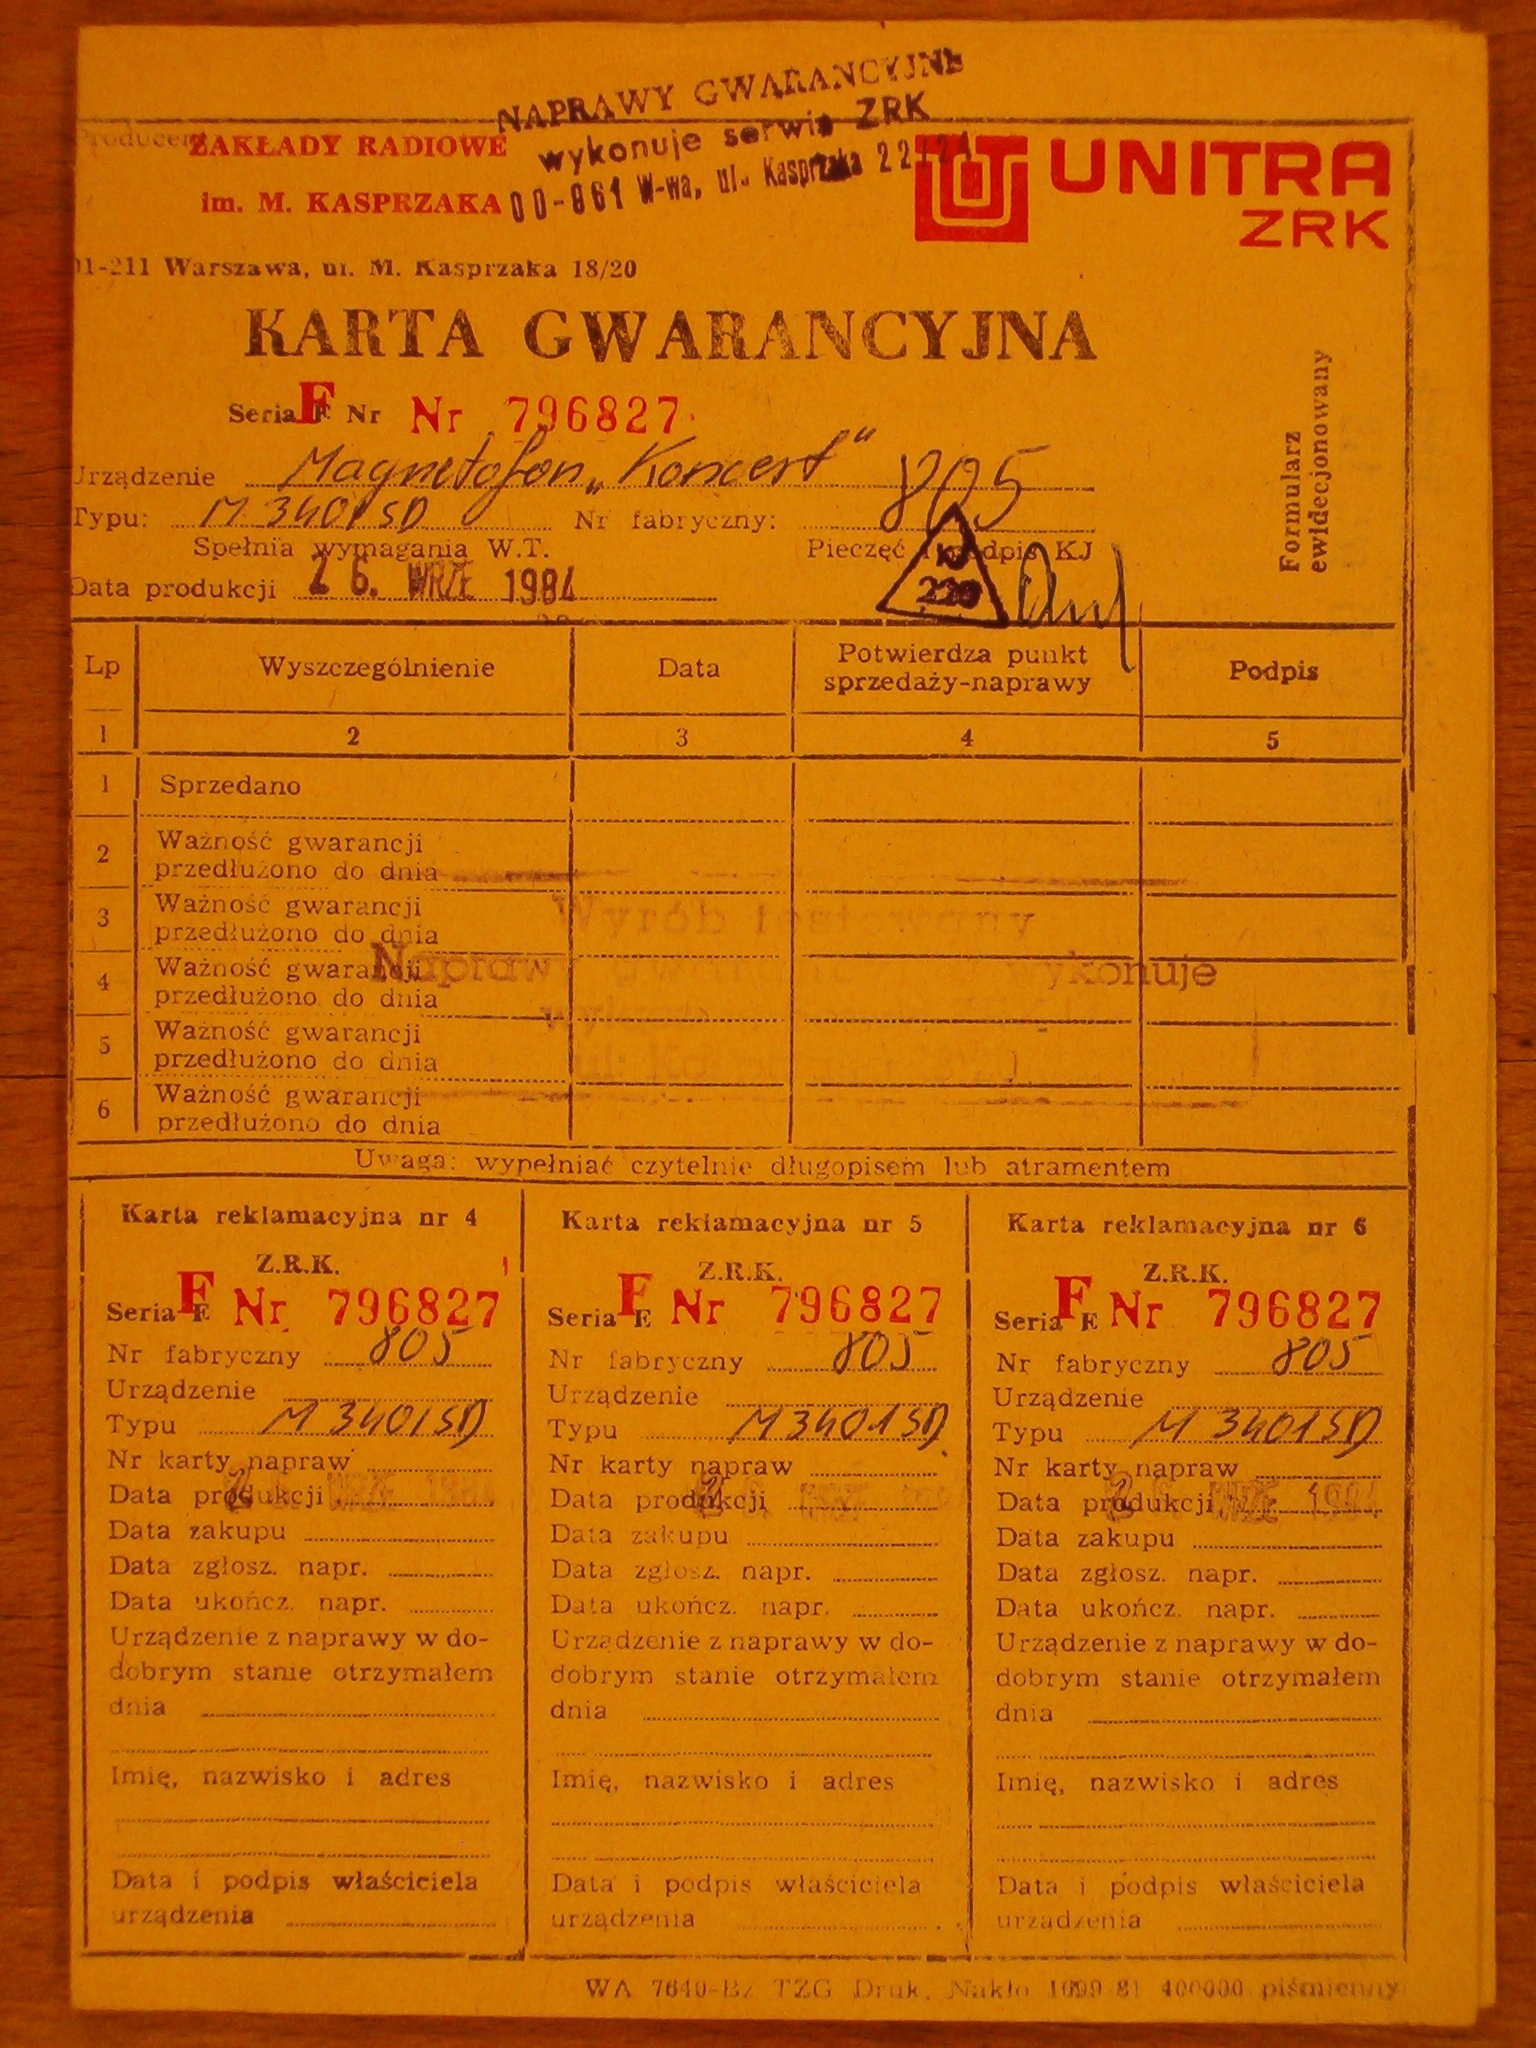 NAPRAWY GWARANCYJNE
wykonuje serwis ZRK
00-861 W-wa, ul. Kasprzaka 22/24
Producent
ZAKŁADY RADIOWE
im. M. KASPRZAKA
UNITRA
ZRK
01-211 Warszawa, ul. M. Kasprzaka 18/20
KARTA GWARANCYJNA
Seria F E Nr Nr 796827
Formularz
ewidecjonowany
Urządzenie Magnetofon „Koncert" 805
Typu: M 3401 SD Nr fabryczny:
Spełnia wymagania W.T. Pieczęć i podpis KJ
Data produkcji 26. WRZE 1984
220
Lp Wyszczególnienie Data Potwierdza punkt sprzedaży-naprawy Podpis
1 2 3 4 5
1 Sprzedano
2 Ważność gwarancji
przedłużono do dnia
3 Ważność gwarancji
przedłużono do dnia
4 Ważność gwarancji
przedłużono do dnia
5 Ważność gwarancji
przedłużono do dnia
6 Ważność gwarancji
przedłużono do dnia
Wyrób testowany
Naprawy wykonuje
Uwaga: wypełniać czytelnie długopisem lub atramentem
Karta reklamacyjna nr 4
Z.R.K.
Seria F E Nr 796827
Nr fabryczny 805
Urządzenie
Typu M 3401 SD
Nr karty napraw
Data produkcji 26. WRZE 1984
Data zakupu
Data zgłosz. napr.
Data ukończ. napr.
Urządzenie z naprawy w do-
dobrym stanie otrzymałem
dnia
Imię, nazwisko i adres
Data i podpis właściciela
urządzenia
Karta reklamacyjna nr 5
Z.R.K.
Seria F E Nr 796827
Nr fabryczny 805
Urządzenie
Typu M 3401 SD
Nr karty napraw
Data produkcji 26.
Data zakupu
Data zgłosz. napr.
Data ukończ. napr.
Urządzenie z naprawy w do-
dobrym stanie otrzymałem
dnia
Imię, nazwisko i adres
Data i podpis właściciela
urządzenia
Karta reklamacyjna nr 6
Z.R.K.
Seria F E Nr 796827
Nr fabryczny 805
Urządzenie
Typu M 3401 SD
Nr karty napraw
Data produkcji 26. WRZE 1984
Data zakupu
Data zgłosz. napr.
Data ukończ. napr.
Urządzenie z naprawy w do-
dobrym stanie otrzymałem
dnia
Imię, nazwisko i adres
Data i podpis właściciela
urządzenia
WA 7640-Bz TZG Druk. Nakło 1099-81 400000 piśmienny